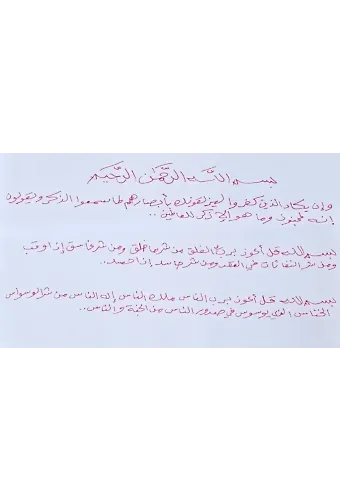 بسم الله الرحمن الرحيم
وإن يكاد الذين كفروا ليزلقونك بأبصارهم لما سمعوا الذكر ويقولون
إنه لمجنون وما هو إلا ذكر للعالمين ..
بسم الله قل أعوذ برب الفلق من شر ما خلق ومن شر غاسق إذا وقب
ومن شر النفاثات في العقد ومن شر حاسد إذا حسد ..
بسم الله قل أعوذ برب الناس ملك الناس إله الناس من شر الوسواس
الخناس الذي يوسوس في صدور الناس من الجنة والناس ..